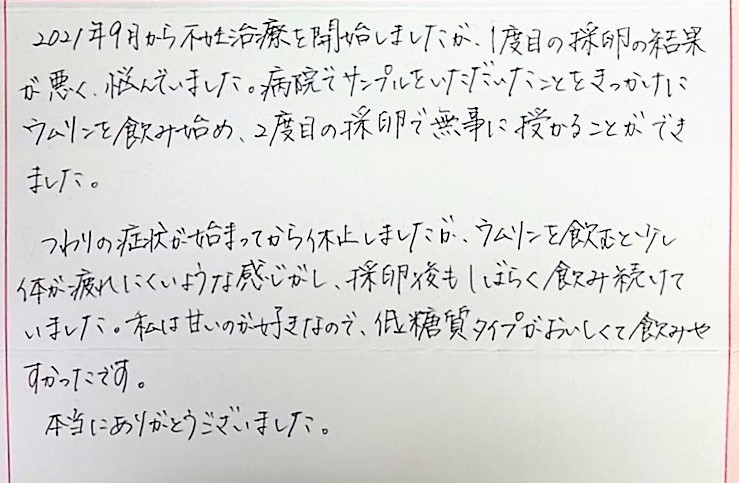 2021年9月から不妊治療を開始しましたが、1度目の採卵の結果
が悪く、悩んでいました。病院でサンプルをいただいたことをきっかけに
ウムリンを飲み始め、2度目の採卵で無事に授かることができ
ました。
つわりの症状が始まってから休止しましたが、ウムリンを飲むと少し
体が疲れにくいような感じがし、採卵後もしばらく飲み続けて
いました。私は甘いのが好きなので、低糖質タイプがおいしくて飲みや
すかったです。
本当にありがとうございました。